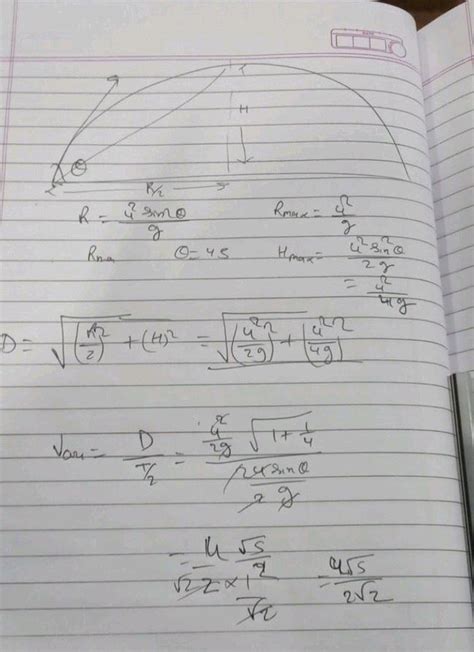 H
θ
R/2
R = u² sin2θ / g    Rmax = u² / g
Rma    θ = 45    Hmax = u² sin²θ / 2g
= u² / 4g
D = √((R/2)² + (H)²) = √((u²/2g)² + (u²/4g)²)
Vav = D / T/2 = u²/2g √(1 + 1/4) / 2u sinθ / 2 g
= u √5
= u√5 / 2√2